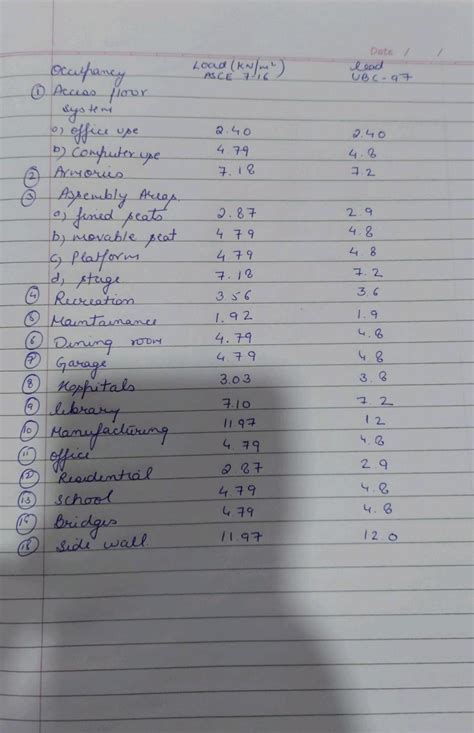 Date / /
Occupancy Load (KN/m²) Load
ASCE 7.16 UBC-97
① Access floor
system
a) office use 2.40 2.40
b) Computer use 4 79 4.8
② Armories 7.18 7.2
③ Assembly Areas.
a) fixed seats 2.87 2.9
b) movable seat 4 79 4.8
c) Platform 4.79 4.8
d) stage 7.18 7.2
④ Recreation 3.56 3.6
⑤ Maintainance 1.92 1.9
⑥ Dining room 4.79 4.8
⑦ Garage 4.79 4 8
⑧ Hospitals 3.03 3.8
⑨ library 7.10 7.2
⑩ Manufacturing 11.97 12
⑪ office 4.79 4.8
⑫ Residential 2.87 2 9
⑬ School 4.79 4.8
⑭ Bridges 4.79 4.8
⑮ Side wall 11.97 12.0